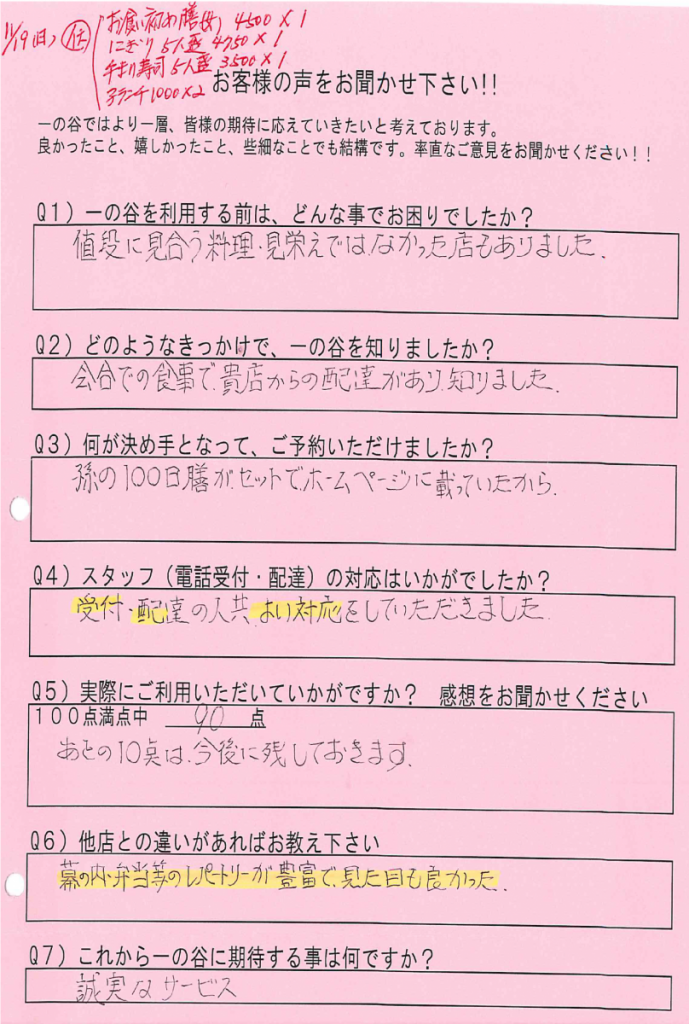 11/19(日)
お食い初め膳(女) 4500×1
にぎり 5人盛 4750×1
手まり寿司 5人盛 3500×1
子ランチ1000×2
お客様の声をお聞かせ下さい!!
一の谷ではより一層、皆様の期待に応えていきたいと考えております。
良かったこと、嬉しかったこと、些細なことでも結構です。率直なご意見をお聞かせください！！
Q1）一の谷を利用する前は、どんな事でお困りでしたか？
値段に見合う料理・見栄えではなかった店もありました.
Q2）どのようなきっかけで、一の谷を知りましたか？
会合での食事で、貴店からの配達があり、知りました.
Q3）何が決め手となって、ご予約いただけましたか？
孫の100日膳が、セットで、ホームページに載っていたから.
Q4）スタッフ（電話受付・配達）の対応はいかがでしたか？
受付・配達の人共、よい対応をしていただきました.
Q5）実際にご利用いただいていかがですか？　感想をお聞かせください
100点満点中 90 点
あとの10点は、今後に残しておきます.
Q6）他店との違いがあればお教え下さい
幕の内・弁当等のレパートリーが豊富で、見た目も良かった.
Q7）これから一の谷に期待する事は何ですか？
誠実なサービス